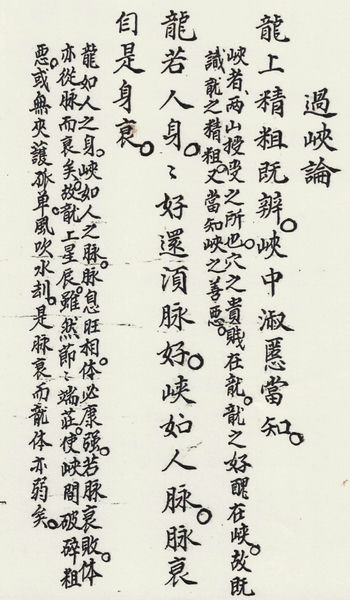 過峽論
龍上精粗既辨。峽中淑慝當知。
峽者、兩山授受之所也。穴之貴賎在龍。龍之好醜在峽。故既
識龍之精粗。又當知峽之善惡。
龍若人身。〻好還湏脉好。峽如人脉。脉衰
自是身衰。
龍如人之身。峽如人之脉。脉息旺相。体必康强。若脉衰敗。体
亦從脉而衰矣。故龍上星辰。雖然節〻端莊。使峽間破碎粗
惡。或無夾護孤单。風吹水刦。是脉衰而龍体亦弱矣。